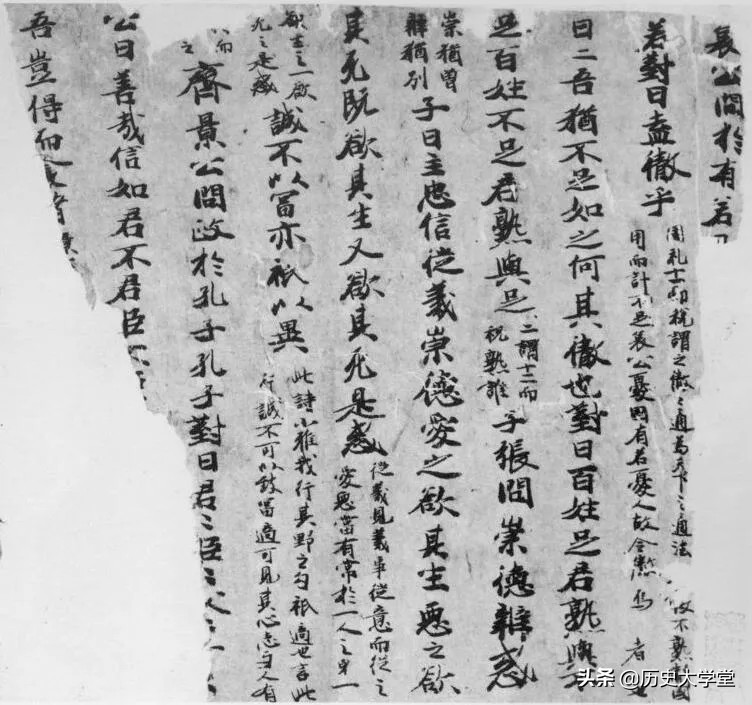 哀公問於有若
若對曰盍徹乎
周礼十一而税謂之徹〻通為天下之通法
用而計不足哀公憂國有若憂人故令徹焉 者
曰二吾猶不足如之何其徹也對曰百姓足君熟與不
足百姓不足君熟與足
二謂十二而
税熟誰
子張問崇德辯惑
崇猶曾
辯猶別
子曰主忠信從義崇德愛之欲其生惡之欲
其死既欲其生又欲其死是惑
從義見義事從意而從之
愛惡當有常於一人之身一
欲生之一欲
死之是惑
誠不以富亦祇以異
此詩小雅我行其野之勾祇適也言此
行誠不可以致富適可見其心志与人有
齊景公問政於孔子孔子對曰君〻臣〻父〻
公曰善哉信如君不君臣不
吾豈得而食諸
头条 @历史大学堂